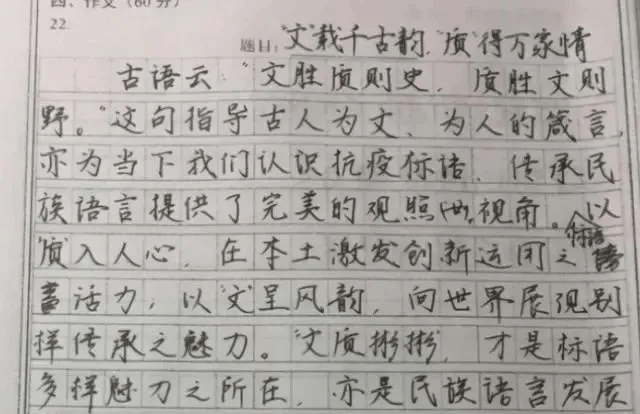 四、作文(60分)
22.
题目:“文”载千古韵,“质”得万家情
古语云:“文胜质则史,质胜文则
野。”这句指导古人为文、为人的箴言,
亦为当下我们认识抗疫标语、传承民
族语言提供了完美的观照视角。以
“质”入人心,在本土激发创新运用之标语
活力,以“文”呈风韵,向世界展现别
样传承之魅力。“文质彬彬”,才是标语
多样魅力之所在,亦是民族语言发展